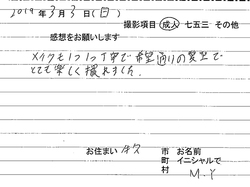 2019年3月3日(日)
撮影項目 成人 七五三 その他
感想をお願いします
メイクも1つ1つ丁寧で希望通りの髪型で
とても楽しく撮れました。
お住まい 牟久 市 お名前
町 イニシャルで
村 M.Y